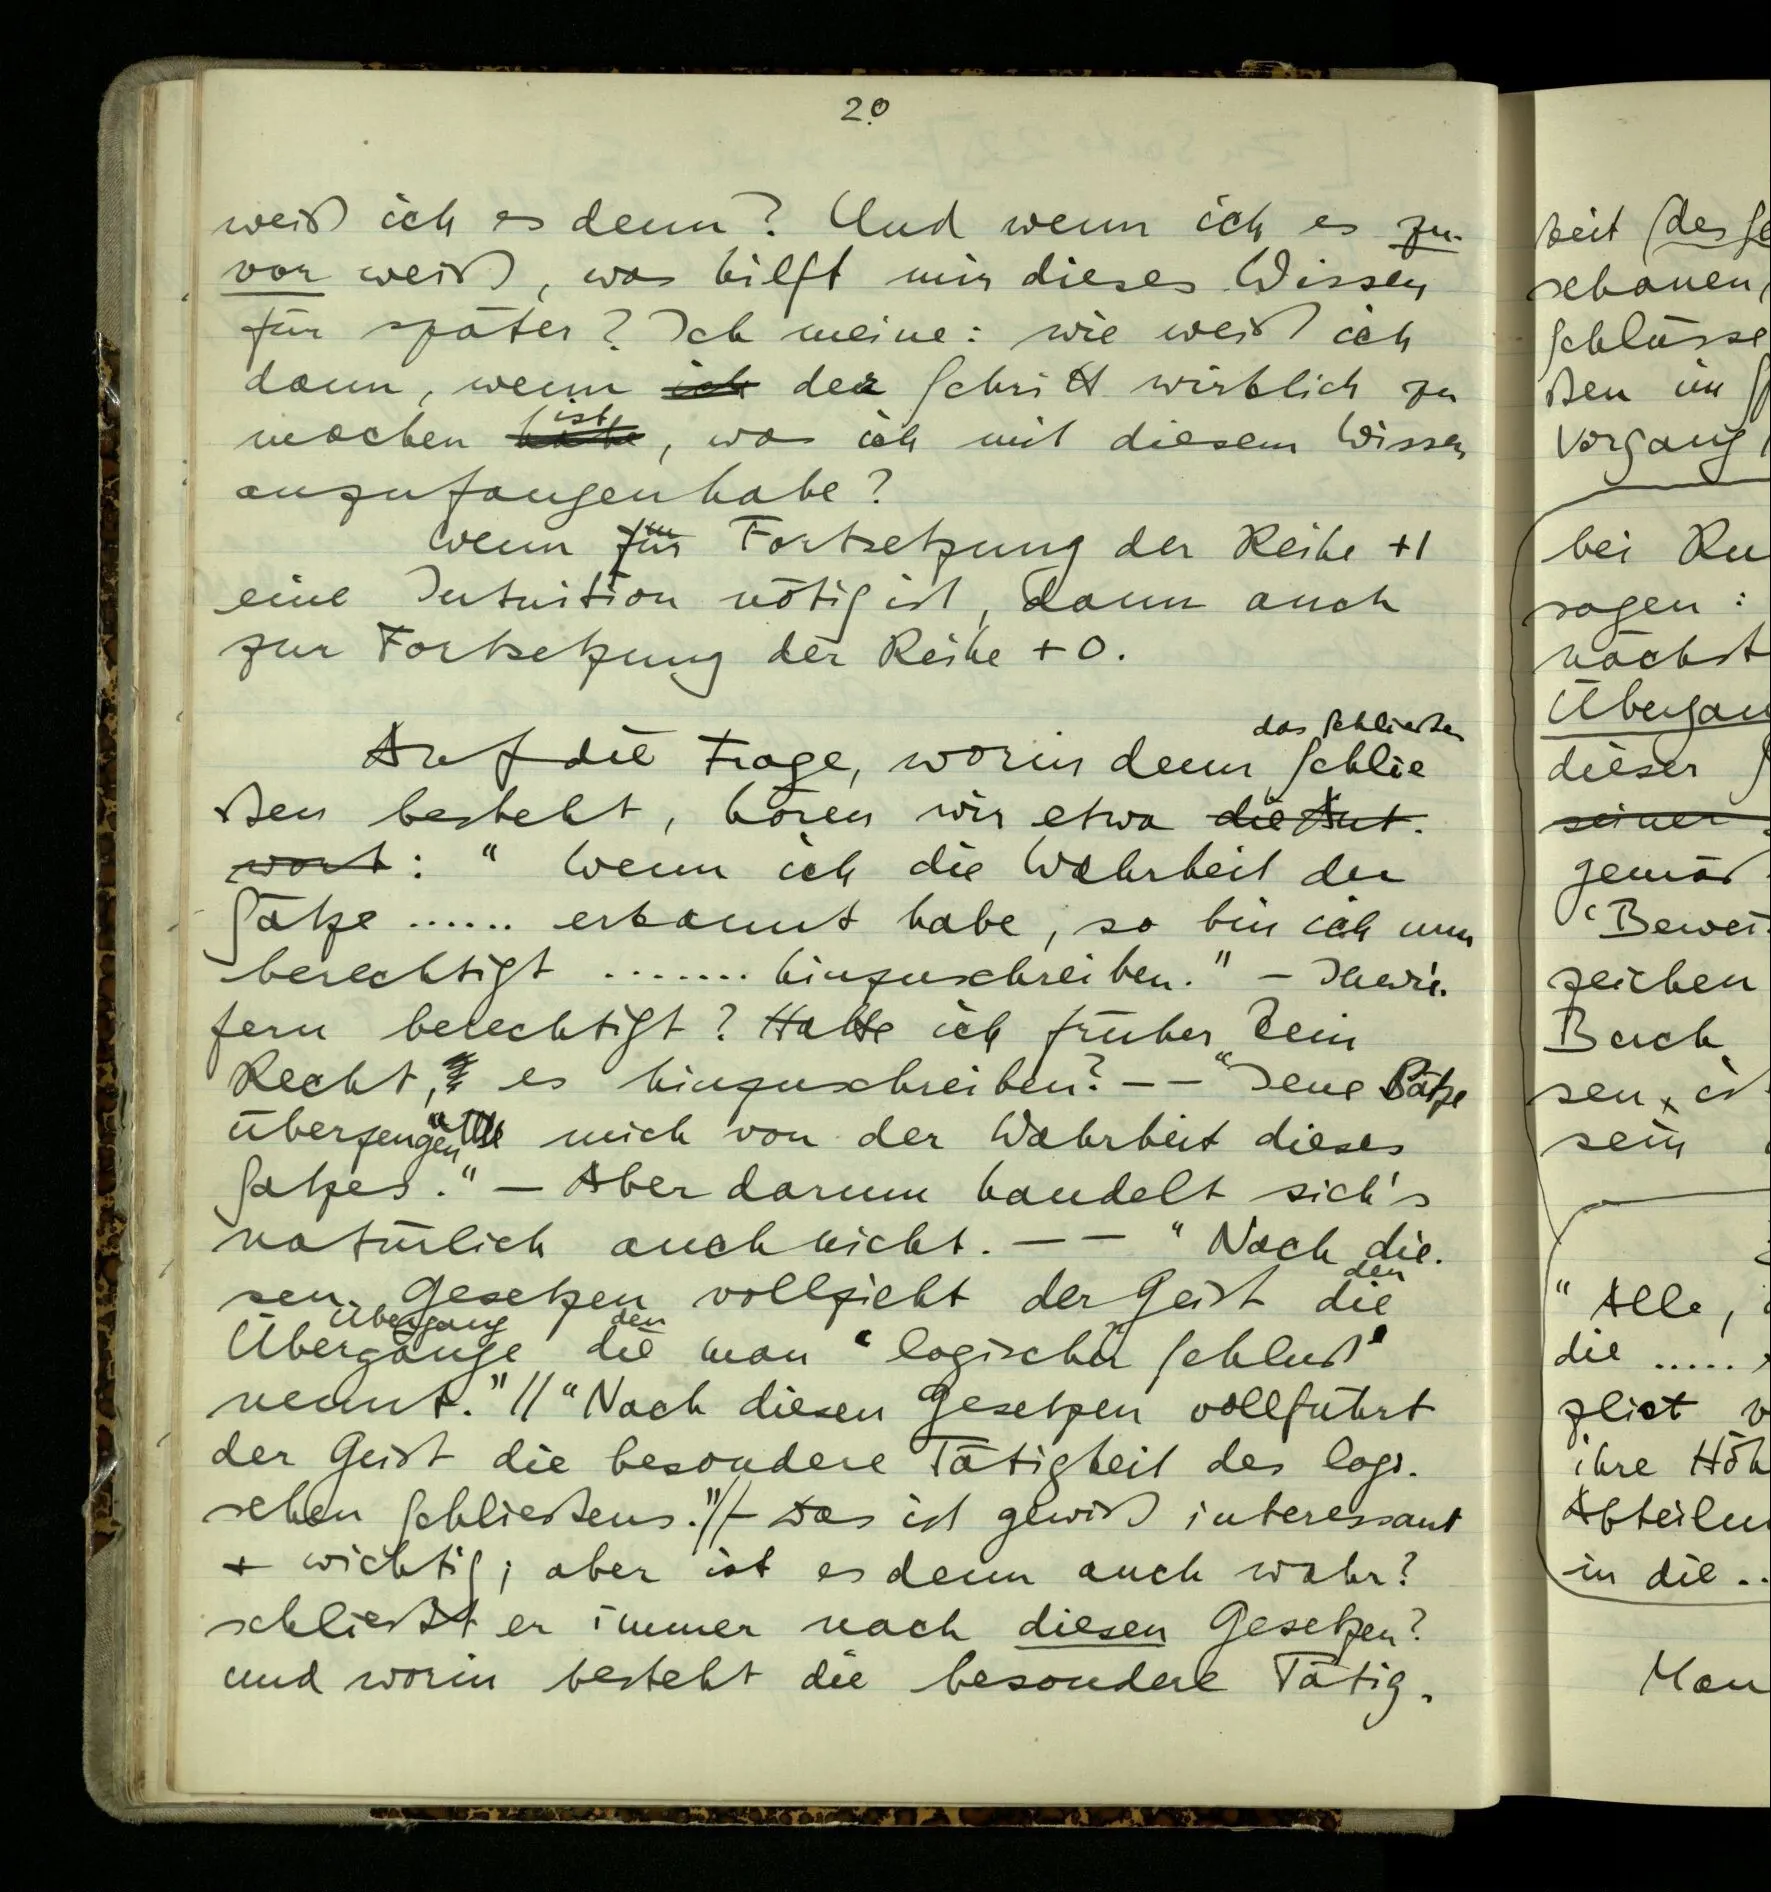 20
weiß ich es denn? Und wenn ich es zu-
vor weiß, was hilft mir dieses Wissen
für später? Ich meine: wie weiß ich
dann, wenn ich der Schritt wirklich zu
ist
machen habe, was ich mit diesem Wissen
anzufangen habe?
Wenn für Fortsetzung der Reihe +1
eine Intuition nötig ist, dann auch
zur Fortsetzung der Reihe +0.
das Schließen
Auf die Frage, worin denn Schlie
ßen besteht, hören wir etwa die Ant-
wort: "Wenn ich die Wahrheit der
Sätze ...... erkannt habe, so bin ich nun
berechtigt ....... hinzuschreiben." – Inwie-
fern berechtigt? Hatte ich früher kein
Recht, es hinzuschreiben? – – "Jene Sätze
überzeugen mich von der Wahrheit dieses
Satzes." – Aber darum handelt sich's
natürlich auch nicht. – – "Nach die-
den
sen Gesetzen vollzieht der Geist die
Übergang den
Übergänge die man 'logischer Schluß'
nennt." // "Nach diesen Gesetzen vollführt
der Geist die besondere Tätigkeit des logi-
schen Schließens."// – Das ist gewiß interessant
+ wichtig; aber ist es denn auch wahr?
schließt er immer nach diesen Gesetzen?
und worin besteht die besondere Tätig-
keit des
schauen,
Schlüsse
ßen im
Vorgang
bei Ru
sagen:
nächst
Übergan
dieser
seiner
gemäß
'Bewei
zeichen
Buch
sen, ist
sein
"Alle,
die .....
plict
ihre Höh
Abteilu
in die ..
Man